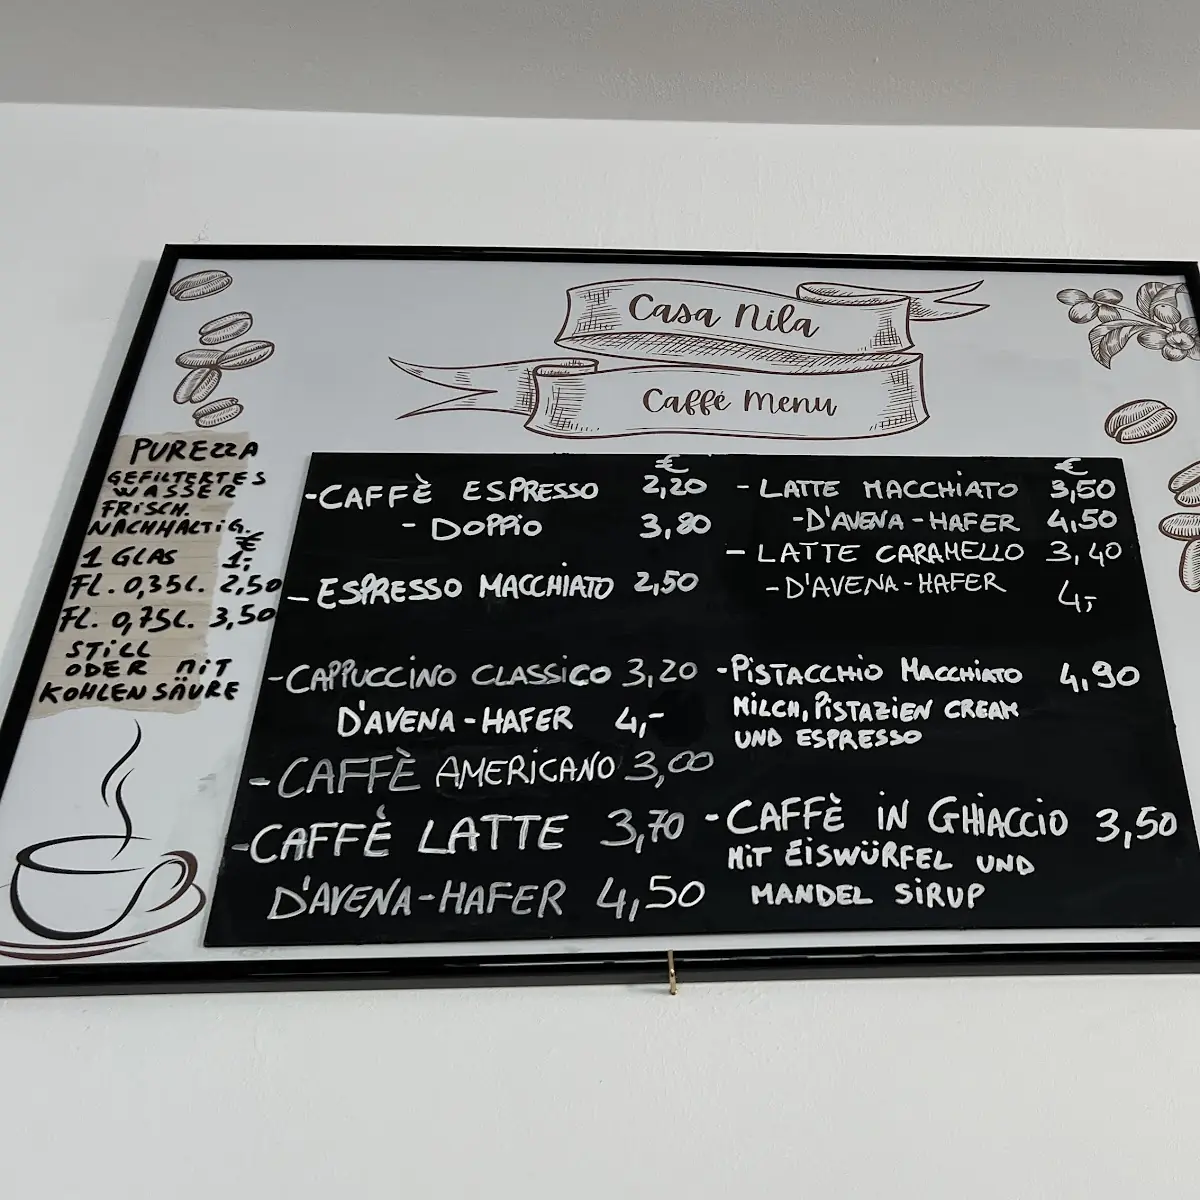 Casa Nila
Caffé Menu
PUREZZA
GEFILTERTES
WASSER
FRISCH.
NACHHALTIG.
€
1 GLAS 1,-
FL. 0,35L. 2,50
FL. 0,75L. 3,50
STILL
ODER MIT
KOHLENSÄURE
€
-CAFFÈ ESPRESSO 2,20
- DOPPIO 3,80
- ESPRESSO MACCHIATO 2,50
-CAPPUCCINO CLASSICO 3,20
D'AVENA-HAFER 4,-
-CAFFÈ AMERICANO 3,00
-CAFFÈ LATTE 3,70
D'AVENA-HAFER 4,50
€
-LATTE MACCHIATO 3,50
-D'AVENA-HAFER 4,50
- LATTE CARAMELLO 3,40
-D'AVENA-HAFER 4,-
-PISTACCHIO MACCHIATO 4,90
MILCH, PISTAZIEN CREAM
UND ESPRESSO
-CAFFÈ IN GHIACCIO 3,50
MIT EISWÜRFEL UND
MANDEL SIRUP